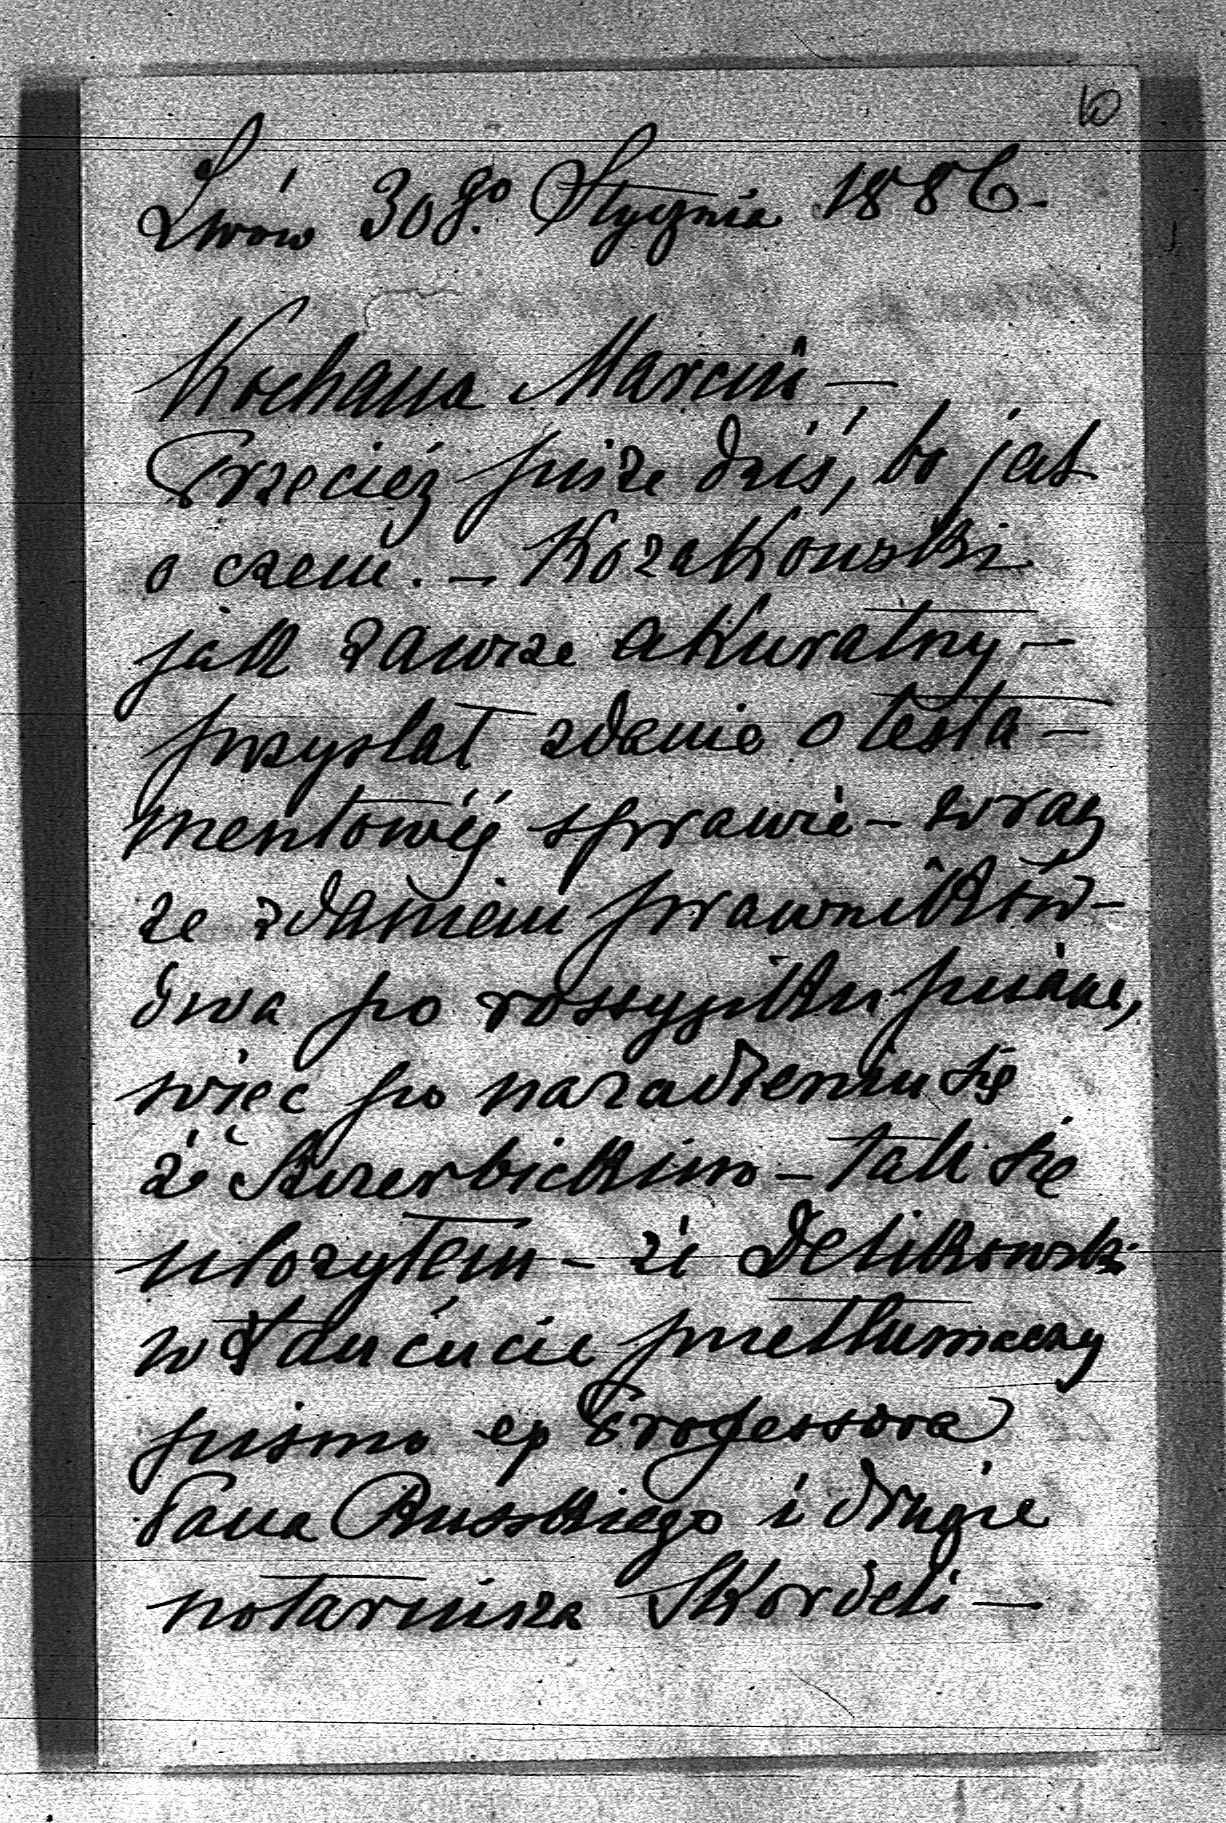 10
Lwów 30go. Stycznia 1886.
Kochana Marciu —
Przecież pisze dziś, bo jest
o czem. — Kozakowski
jak zawsze akuratny —
przysłał zdanie o testa-
mentowéj sprawie — wraz
ze zdaniem prawników —
dwa po rossyjsku pisane,
więc po naradzeniu się
ze Skwerbickim — tak się
ułożyłem — że Delikowski
w Łańcucie przetłumaczy
pismo ex Professora
Pana Russkiego i drugie
notariusza Skordeli —